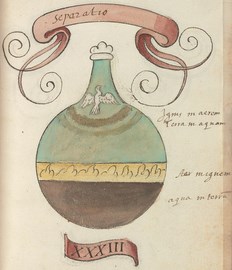 separatio
Ignis in aerem
terra in aquam
aer in ignem
aqua in terrā
XXXIII